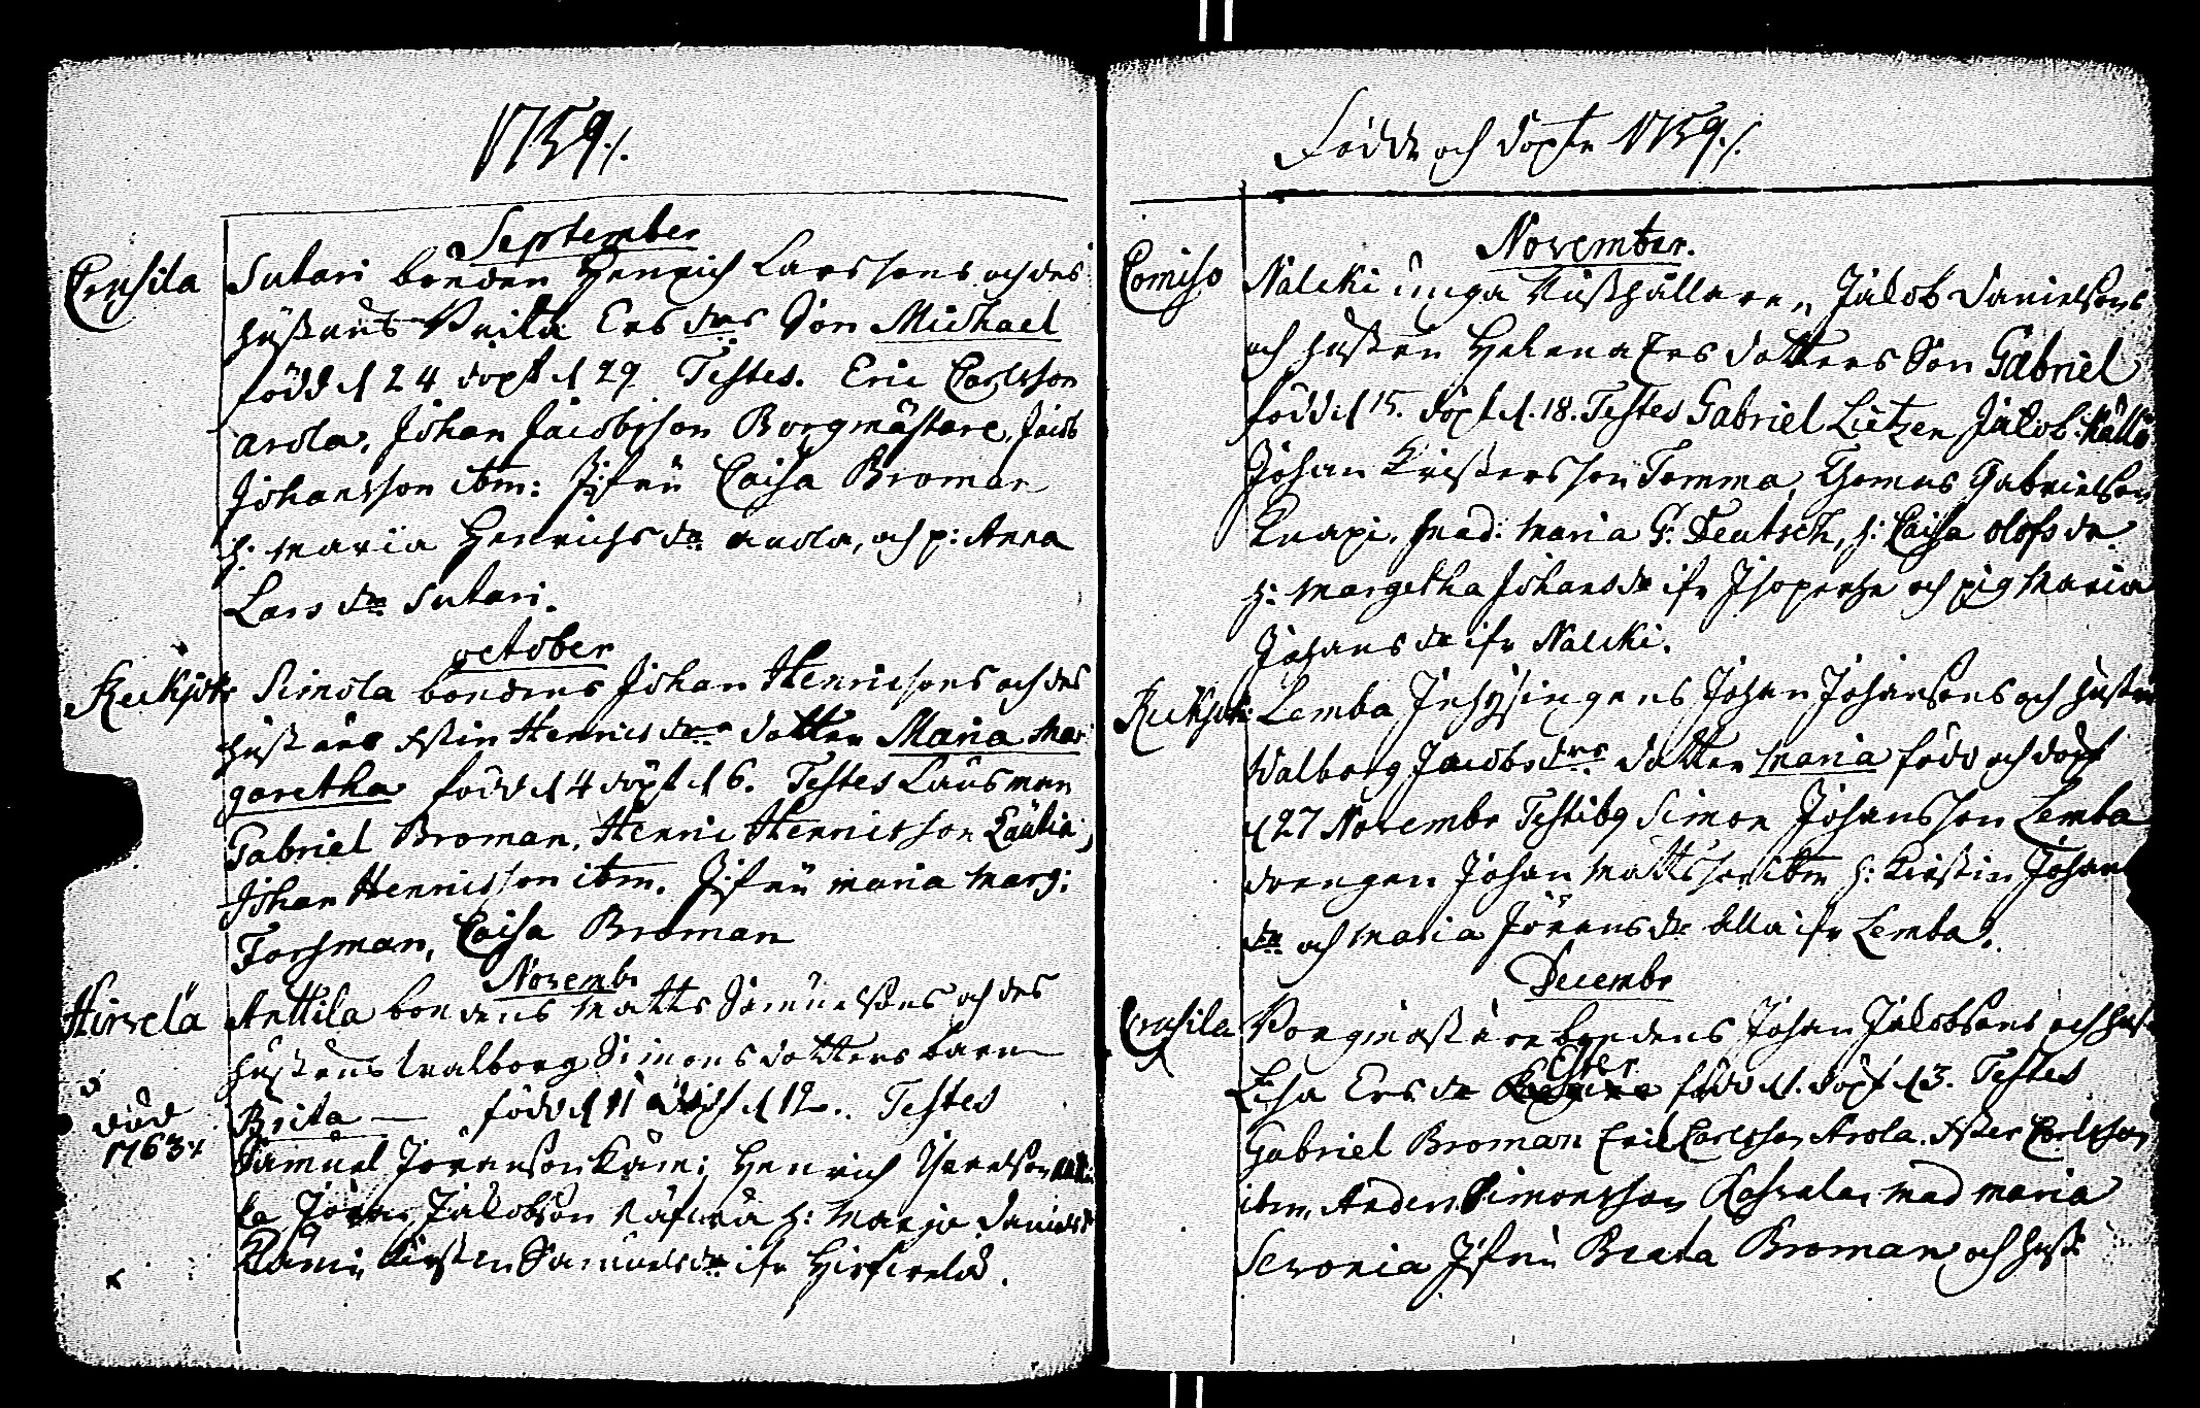 1759./.
September
Crusila Sutari bonden Henrich Larssons och des
hustrus Brita Ers drs Son Michael
född d 24 döpt d 29 Testes. Eric Carlsson
arola, Johan Jacobsson Borgmästare, Jacob
Johansson ibm: Jfru Caisa Broman
h: Maria Henrichs dr arola, och p: Anna
Lars dr Sutari.
october
Simola bondens Johan Henricsons och des
hustrus Henrics drs dotter Maria Mar
garetha född d 4 döpt d 6. Testes Länsman
Gabriel Broman, Henric Henricsson
Johan Henricsson ibm. Jfru maria Marg:
Forsman, Caisa Broman
Novemb:
Hirvelä Anttila bondens Matts Samuelsons och des
hustrus Walborg Simons dotters barn
Brita född d 11 döpt d 12. Testes
död
1763
Samuel Jöransson Henrich
Jöran Jakobson h: Marja Daniels
Samuels dr ifr
Födde och döpte 1759./.
November.
Nalcki unga Rusthållaren Jakob Danielsons
och hustru Helena Ers dotters Son Gabriel
född d 15. döpt d. 18. Testes Gabriel Lietzen, Jakob
Johan Tomma, Thomas Gabrielson
Knapi, Mad: Maria G: Deutsch, h: Caisa olofs dr
h: Margetha Johans dr ifr och pig Maria
Johans dr ifr Nalcki.
Lemba Inhysingens Johan Johansons och hustru
Walborg Jacobs drs dotter Maria född och döpt
d 27 Novembr Testibg Simon Johansson Lemba
drengen Johan Mattsson ibm h: Kirstin Johans
dr och Maria Jörans dr alla ifr Lemba.
Decembr
Crusila Borgmästare bondens Johan Jakobsons och hust
Lisa Ers dr Ester född d 1. döpt d 3. Testes
Gabriel Broman Eric Carlsson Arola. Carlsson
ibm, Anders Simonsson mad maria
Jfru Beata Broman och hust